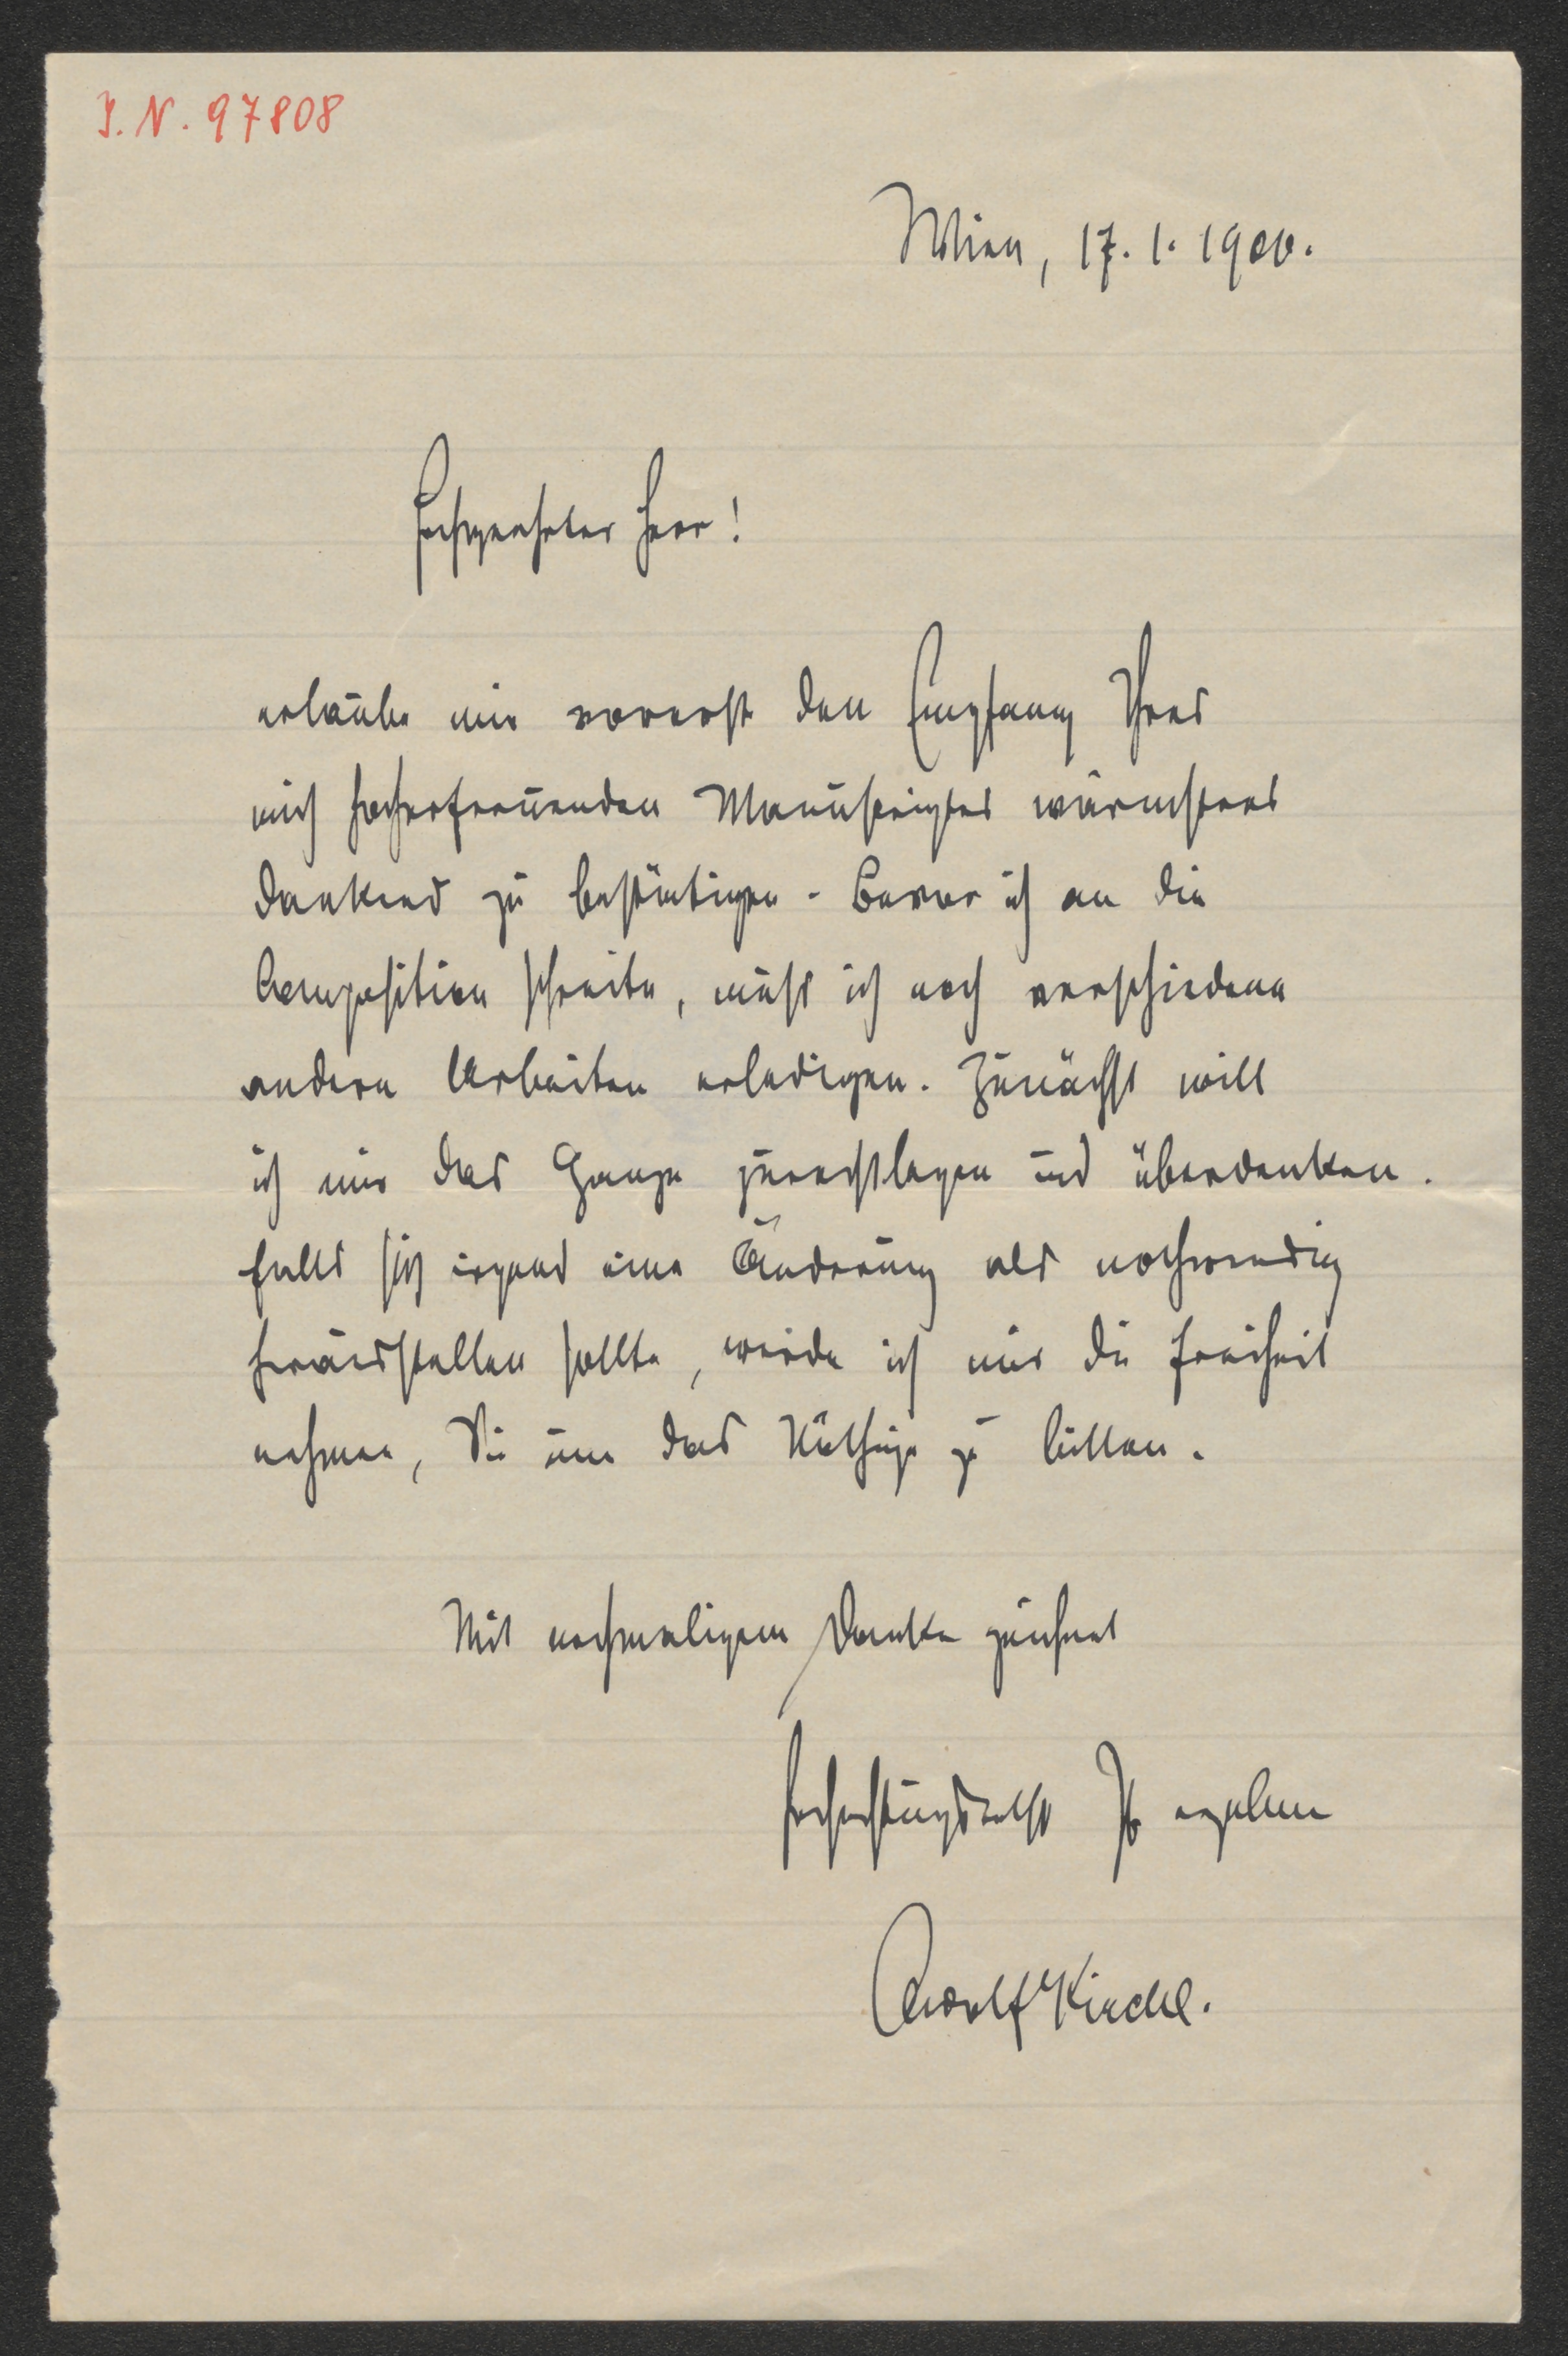 I. N. 97808
Wien, 17. 1. 1900.
Hochgeehrter Herr!
erlaube mir vorerst den Empfang Ihres
mich hocherfreuenden Manuscriptes wärmstens
dankend zu bestätigen. Bevor ich an die
Composition schreite, muß ich noch verschiedene
andere Arbeiten erledigen. Zunächst will
ich mir das Ganze zurechtlegen und überdenken.
Falls sich irgend eine Änderung als nothwendig
herausstellen sollte, werde ich mir die Freiheit
nehmen, Sie um das Nöthige zu bitten.
Mit nochmaligem Danke zeichnet
hochachtungsvollst Ihr ergebene
Adolf Kirchl.